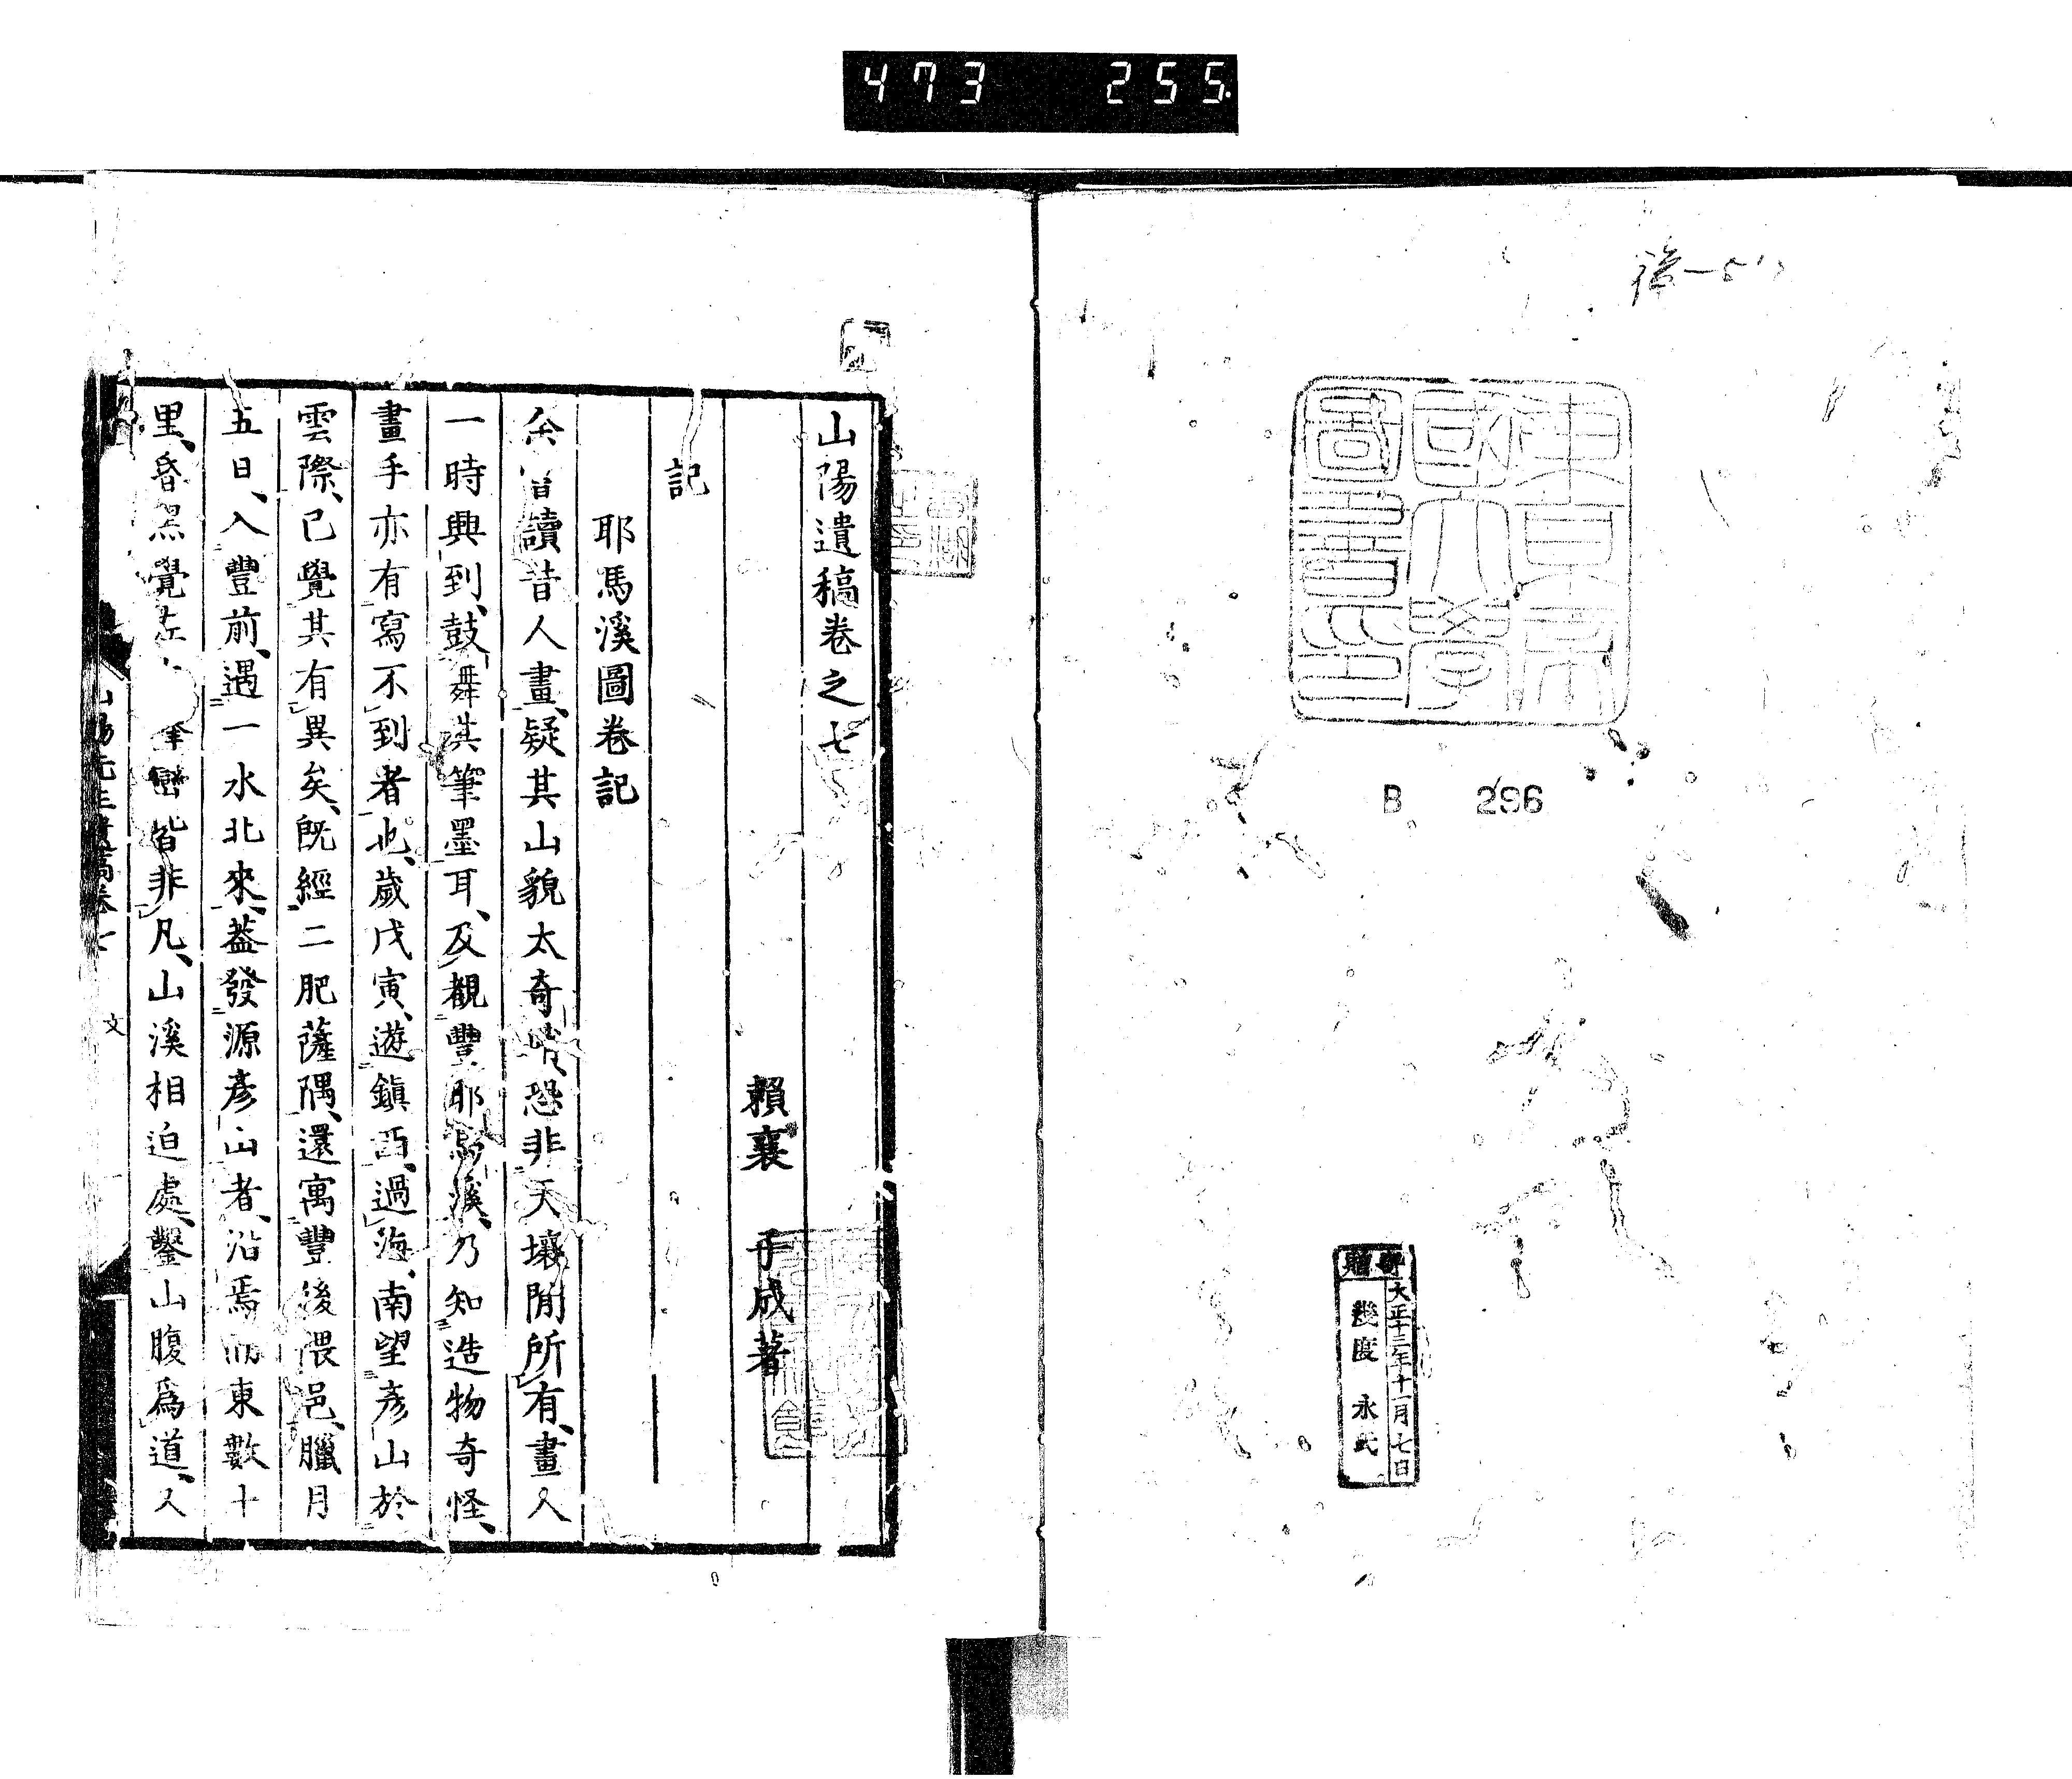 473 255
東京
帝國大學
圖書印
B 296
寄贈
大正十三年十一月七日
幾度永氏
山陽遺稿卷之七
賴襄 子成著
記
耶馬溪圖卷記
余嘗讀昔人畫、疑其山貌太奇峭、恐非天壤閒所有、畫人
一時興到、鼓舞其筆墨耳、及觀豐耶馬溪、乃知造物奇怪、
畫手亦有寫不到者也、歲戊寅、遊鎭西、過海、南望彥山於
雲際、已覺其有異矣、旣經二肥薩隅、還寓豐後隈邑、臘月
五日、入豐前、遇一水北來、葢發源彥山者、沿焉而東數十
里、昏黑覺左 峯巒皆非凡、山溪相迫處、鑿山腹爲道、又
山陽先生遺稿卷七 文